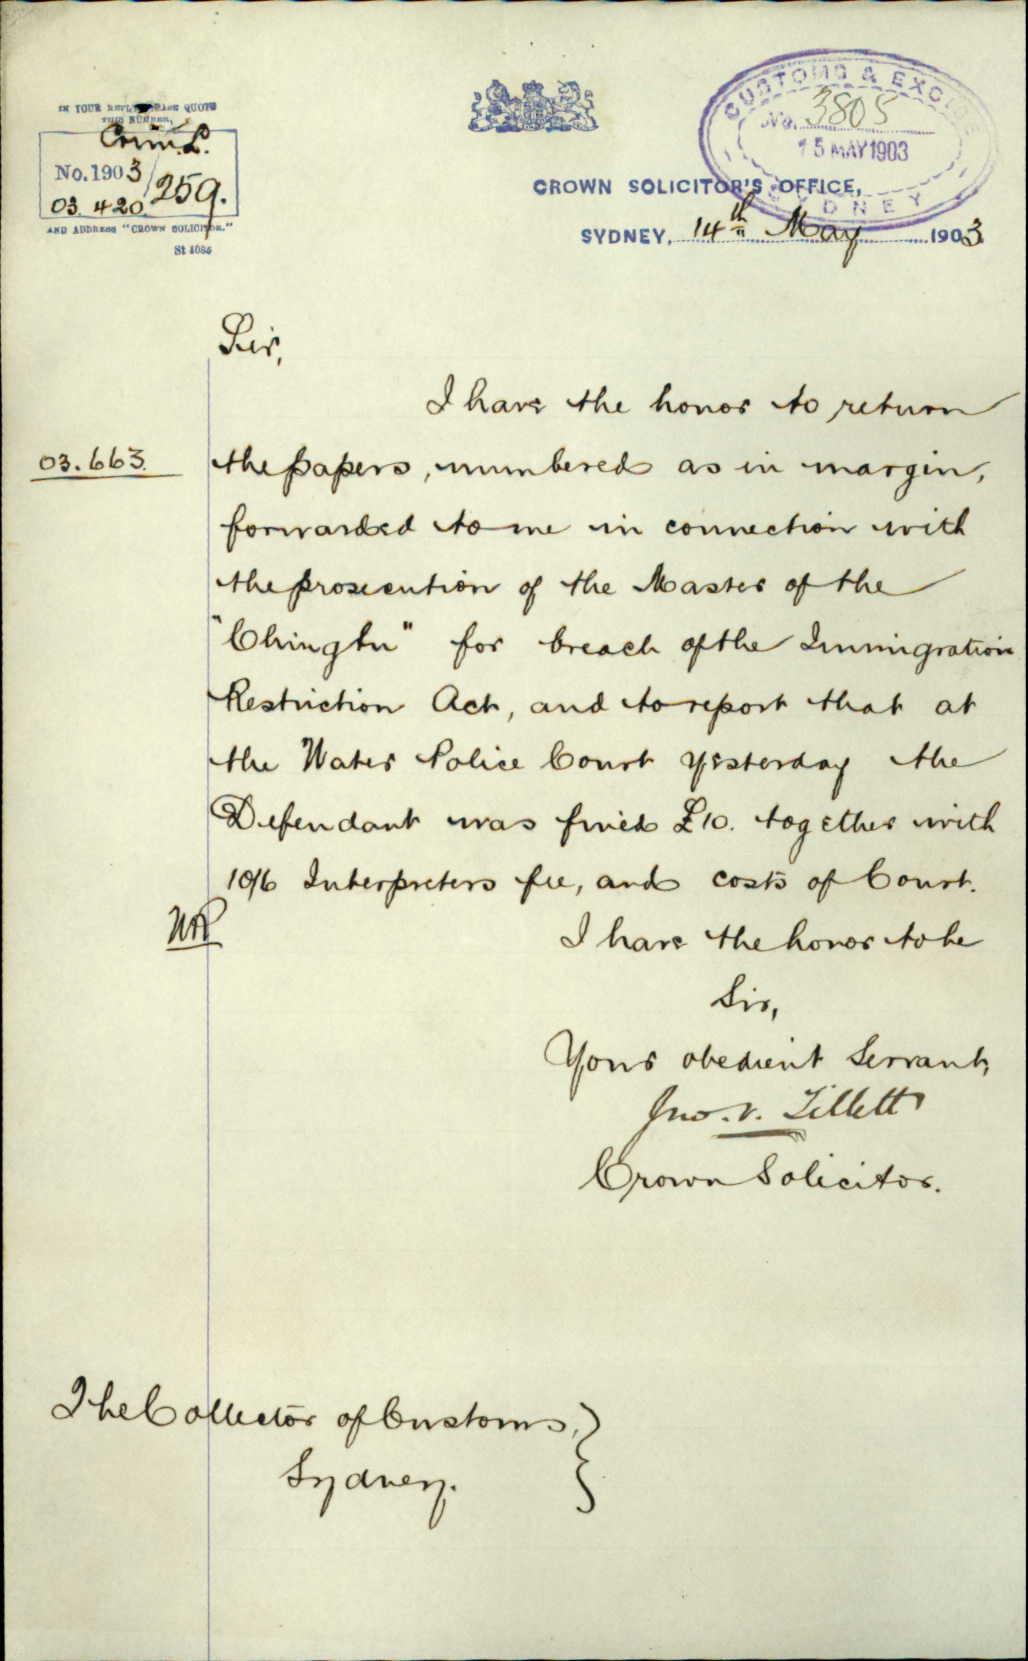 IN YOUR REPLY PLEASE QUOTE
THIS NUMBER,
Crim. L.
No. 1903/259.
03. 420
AND ADDRESS "CROWN SOLICITOR."
St 4085
CUSTOMS & EXCISE
No. 3805
15 MAY 1903
SYDNEY
CROWN SOLICITOR'S OFFICE,
SYDNEY, 14th May 1903
Sir,
I have the honor to return
03.663. the papers, numbered as in margin,
forwarded to me in connection with
the prosecution of the Master of the
"Chingtu" for breach of the Immigration
Restriction Act, and to report that at
the Water Police Court yesterday the
Defendant was fined £10. together with
10/6 Interpreters fee, and costs of Court.
I have the honor to be
Sir,
Your obedient Servant,
Jno. V. Tillett
Crown Solicitor.
The Collector of Customs,
Sydney.